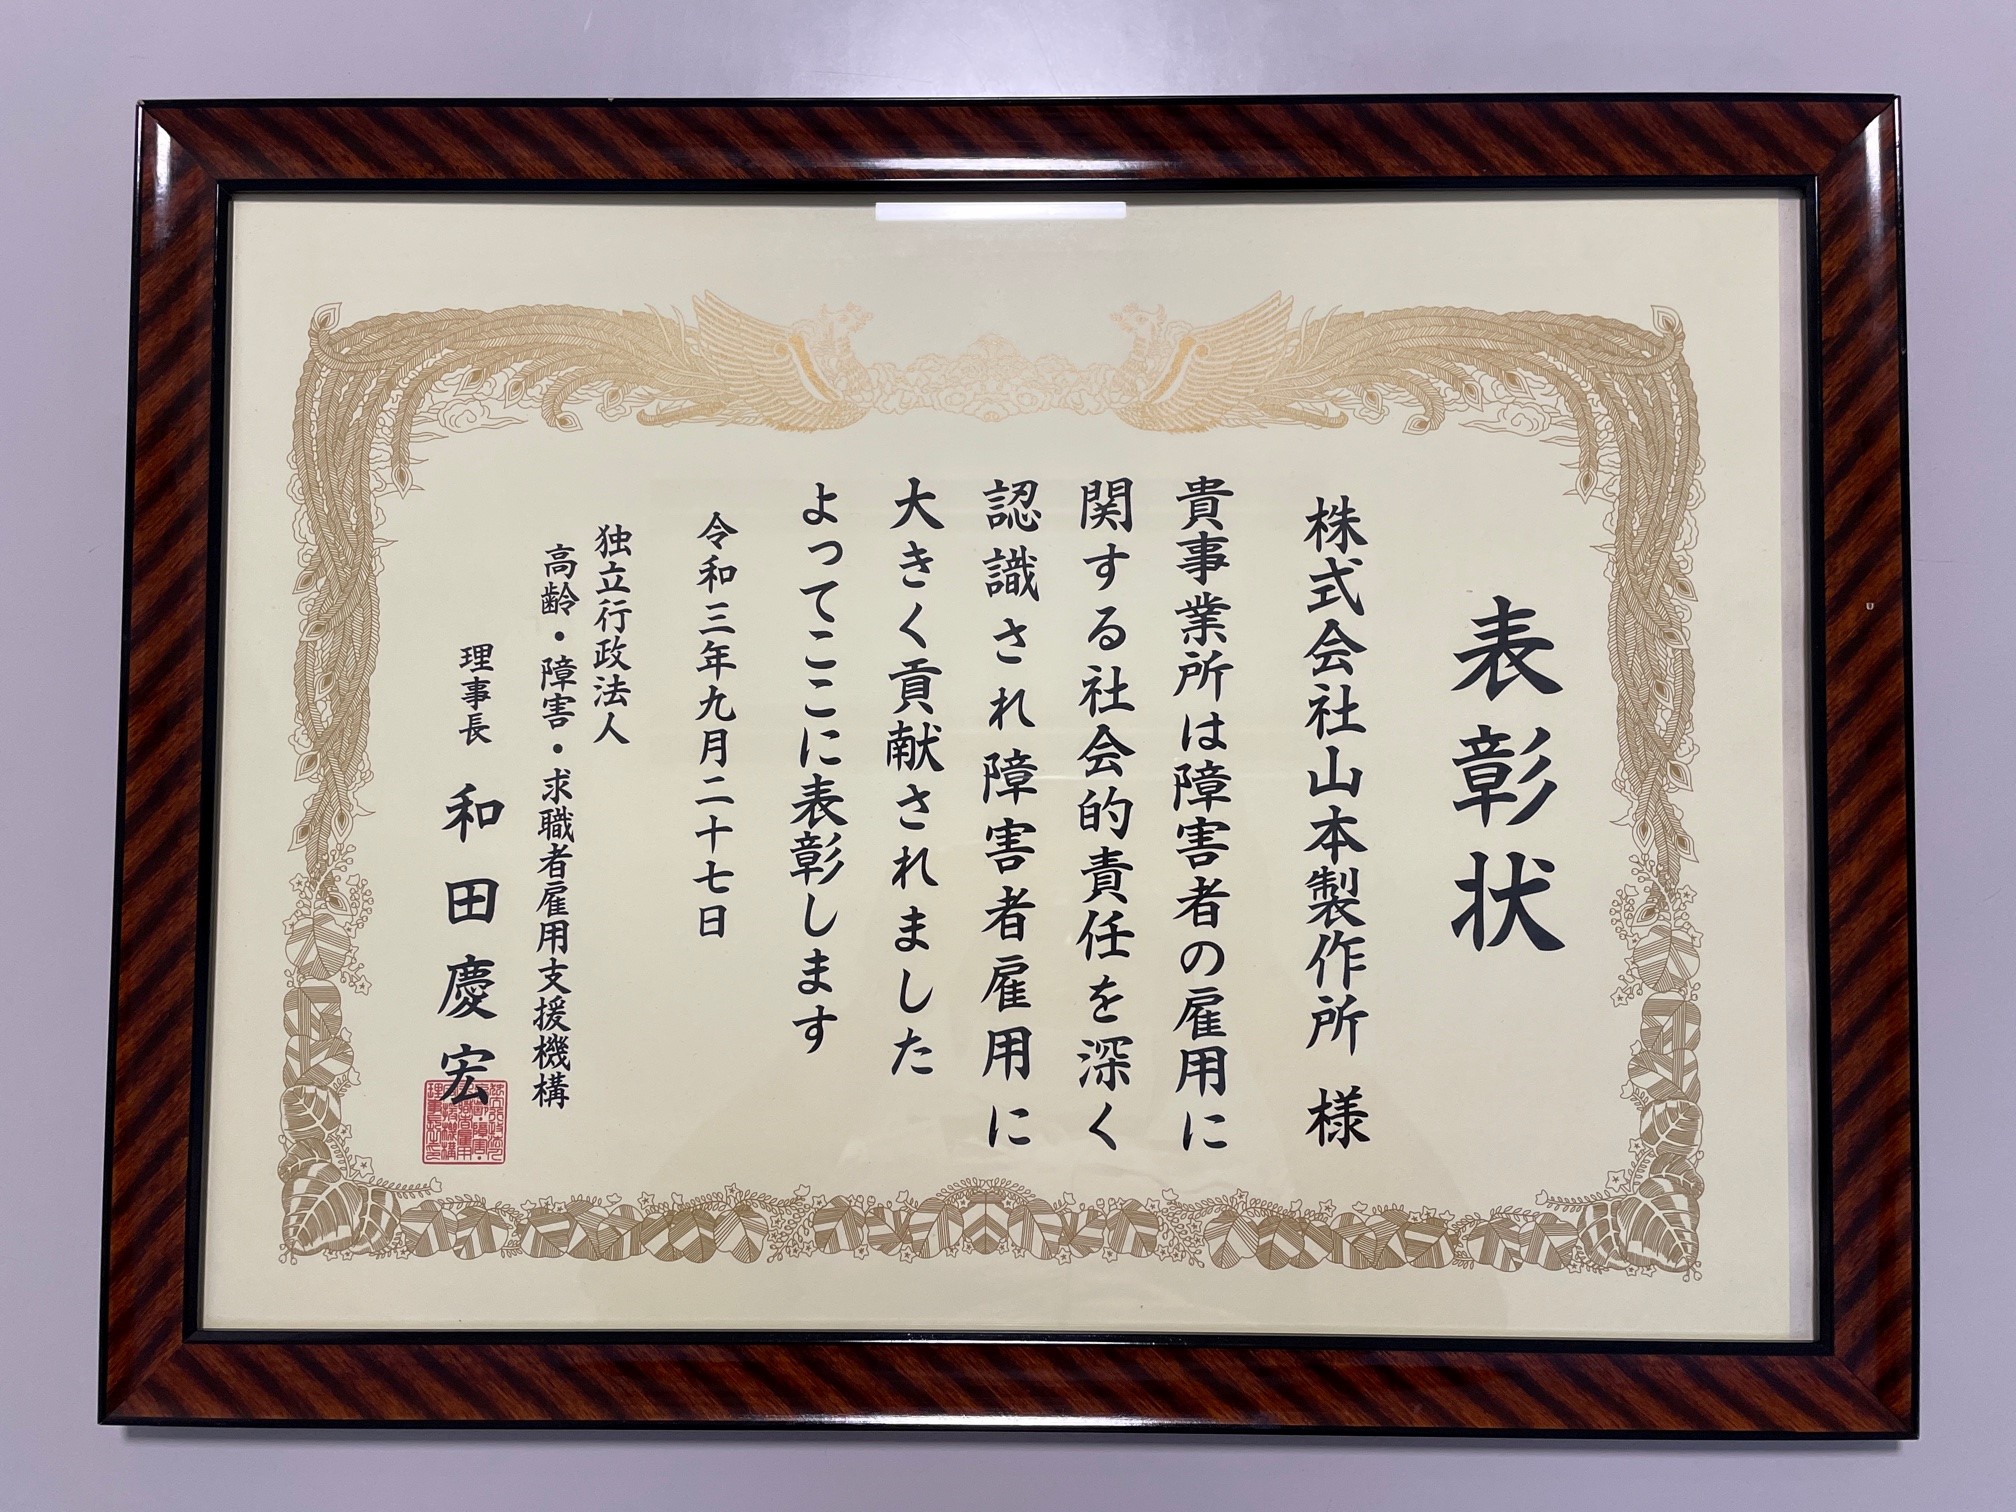 表彰状
株式会社山本製作所 様
貴事業所は障害者の雇用に
関する社会的責任を深く
認識され障害者雇用に
大きく貢献されました
よってここに表彰します
令和三年九月二十七日
独立行政法人
高齢・障害・求職者雇用支援機構
理事長 和田慶宏